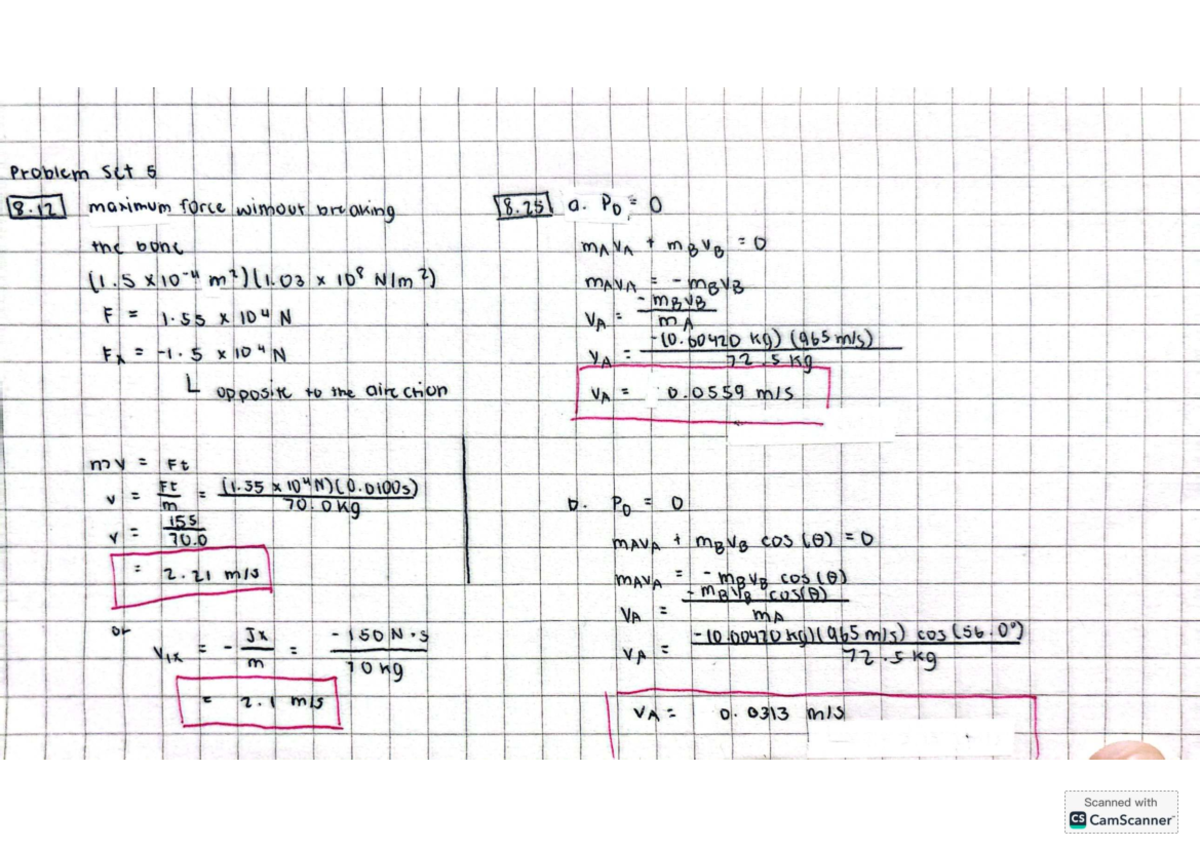 Problem Set 5
8.12 maximum force without breaking
the bone
(1.5 x 10⁻⁴ m²)(1.03 x 10⁸ N/m²)
F = 1.55 x 10⁴ N
Fₓ = -1.5 x 10⁴ N
└ opposite to the direction
mv = Ft
v = Ft/m = (1.55 x 10⁴ N)(0.0100s)/70.0kg
v = 155/70.0
= 2.21 m/s
or
V₁ₓ = - Jx/m = -150 N·s/70 kg
= 2.1 m/s
8.25 a. P₀ = 0
mAVA + mBVB = 0
mAVA = -mBVB
VA = -mBVB/mA
VA = -(0.00420 kg)(965 m/s)/72.5 kg
VA = 0.0559 m/s
b. P₀ = 0
mAVA + mBVB cos(θ) = 0
mAVA = -mBVB cos(θ)
VA = -mBVB cos(θ)/mA
VA = -(0.00420 kg)(965 m/s) cos(56.0°)/72.5 kg
VA = 0.0313 m/s
Scanned with
CS CamScanner